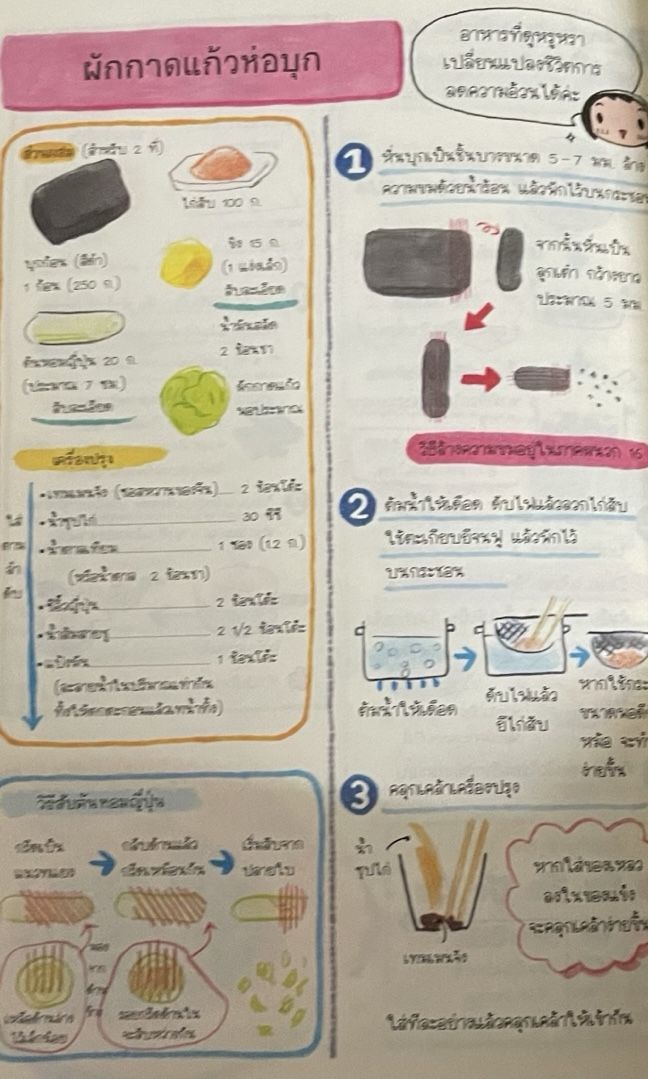 ผักกาดแก้วห่อบุก
อาหารที่ดูหรูหรา
เปลี่ยนแปลงชีวิตการ
ลดความอ้วนได้ค่ะ
ส่วนผสม (สำหรับ 2 ที่)
ไก่สับ 100 ก.
บุกก้อน (สีดำ)
1 ก้อน (250 ก.)
ขิง 15 ก.
(1 แง่งเล็ก)
สับละเอียด
ต้นหอมญี่ปุ่น 20 ก.
(ประมาณ 7 ซม.)
สับละเอียด
น้ำมันสลัด
2 ช้อนชา
ผักกาดแก้ว
พอประมาณ
เครื่องปรุง
ใส่
ตาม
ลำ
ดับ
• เทนเมนจัง (ซอสหวานของจีน) 2 ช้อนโต๊ะ
• น้ำซุปไก่ 30 ซีซี
• น้ำตาลเทียม 1 ซอง (1.2 ก.)
(หรือน้ำตาล 2 ช้อนชา)
• ซีอิ๊วญี่ปุ่น 2 ช้อนโต๊ะ
• น้ำส้มสายชู 2 1/2 ช้อนโต๊ะ
• แป้งมัน 1 ช้อนโต๊ะ
(ละลายน้ำในปริมาณเท่ากัน
ทิ้งให้ตกตะกอนแล้วเทน้ำทิ้ง)
วิธีสับต้นหอมญี่ปุ่น
กรีดเป็น
แนวทแยง
กลับด้านแล้ว
กรีดเหมือนกัน
เริ่มสับจาก
ปลายใบ
มอง
จาก
ด้าน
ข้าง
เหลือด้านล่าง
ไว้เล็กน้อย
รอยกรีดด้านใน
1 หั่นบุกเป็นชิ้นบางขนาด 5-7 มม. ล้าง
ความขมด้วยน้ำร้อน แล้วพักไว้บนกระชอน
จากนั้นหั่นเป็น
ลูกเต๋า กว้างยาว
ประมาณ 5 มม
วิธีล้างความขมอยู่ในภาคผนวก 16
2 ต้มน้ำให้เดือด ดับไฟแล้วลวกไก่สับ
ใช้ตะเกียบยีจนฟู แล้วพักไว้
บนกระชอน
ต้มน้ำให้เดือด
ดับไฟแล้ว
ยีไก่สับ
หากใช้กระ
ขนาดพอดี
หม้อ จะทำ
ง่ายขึ้น
3 คลุกเคล้าเครื่องปรุง
น้ำ
ซุปไก่
เทนเมนจัง
หากใส่ของเหลว
ลงในของแข็ง
จะคลุกเคล้าง่ายขึ้น
ใส่ทีละอย่างแล้วคลุกเคล้าให้เข้ากัน